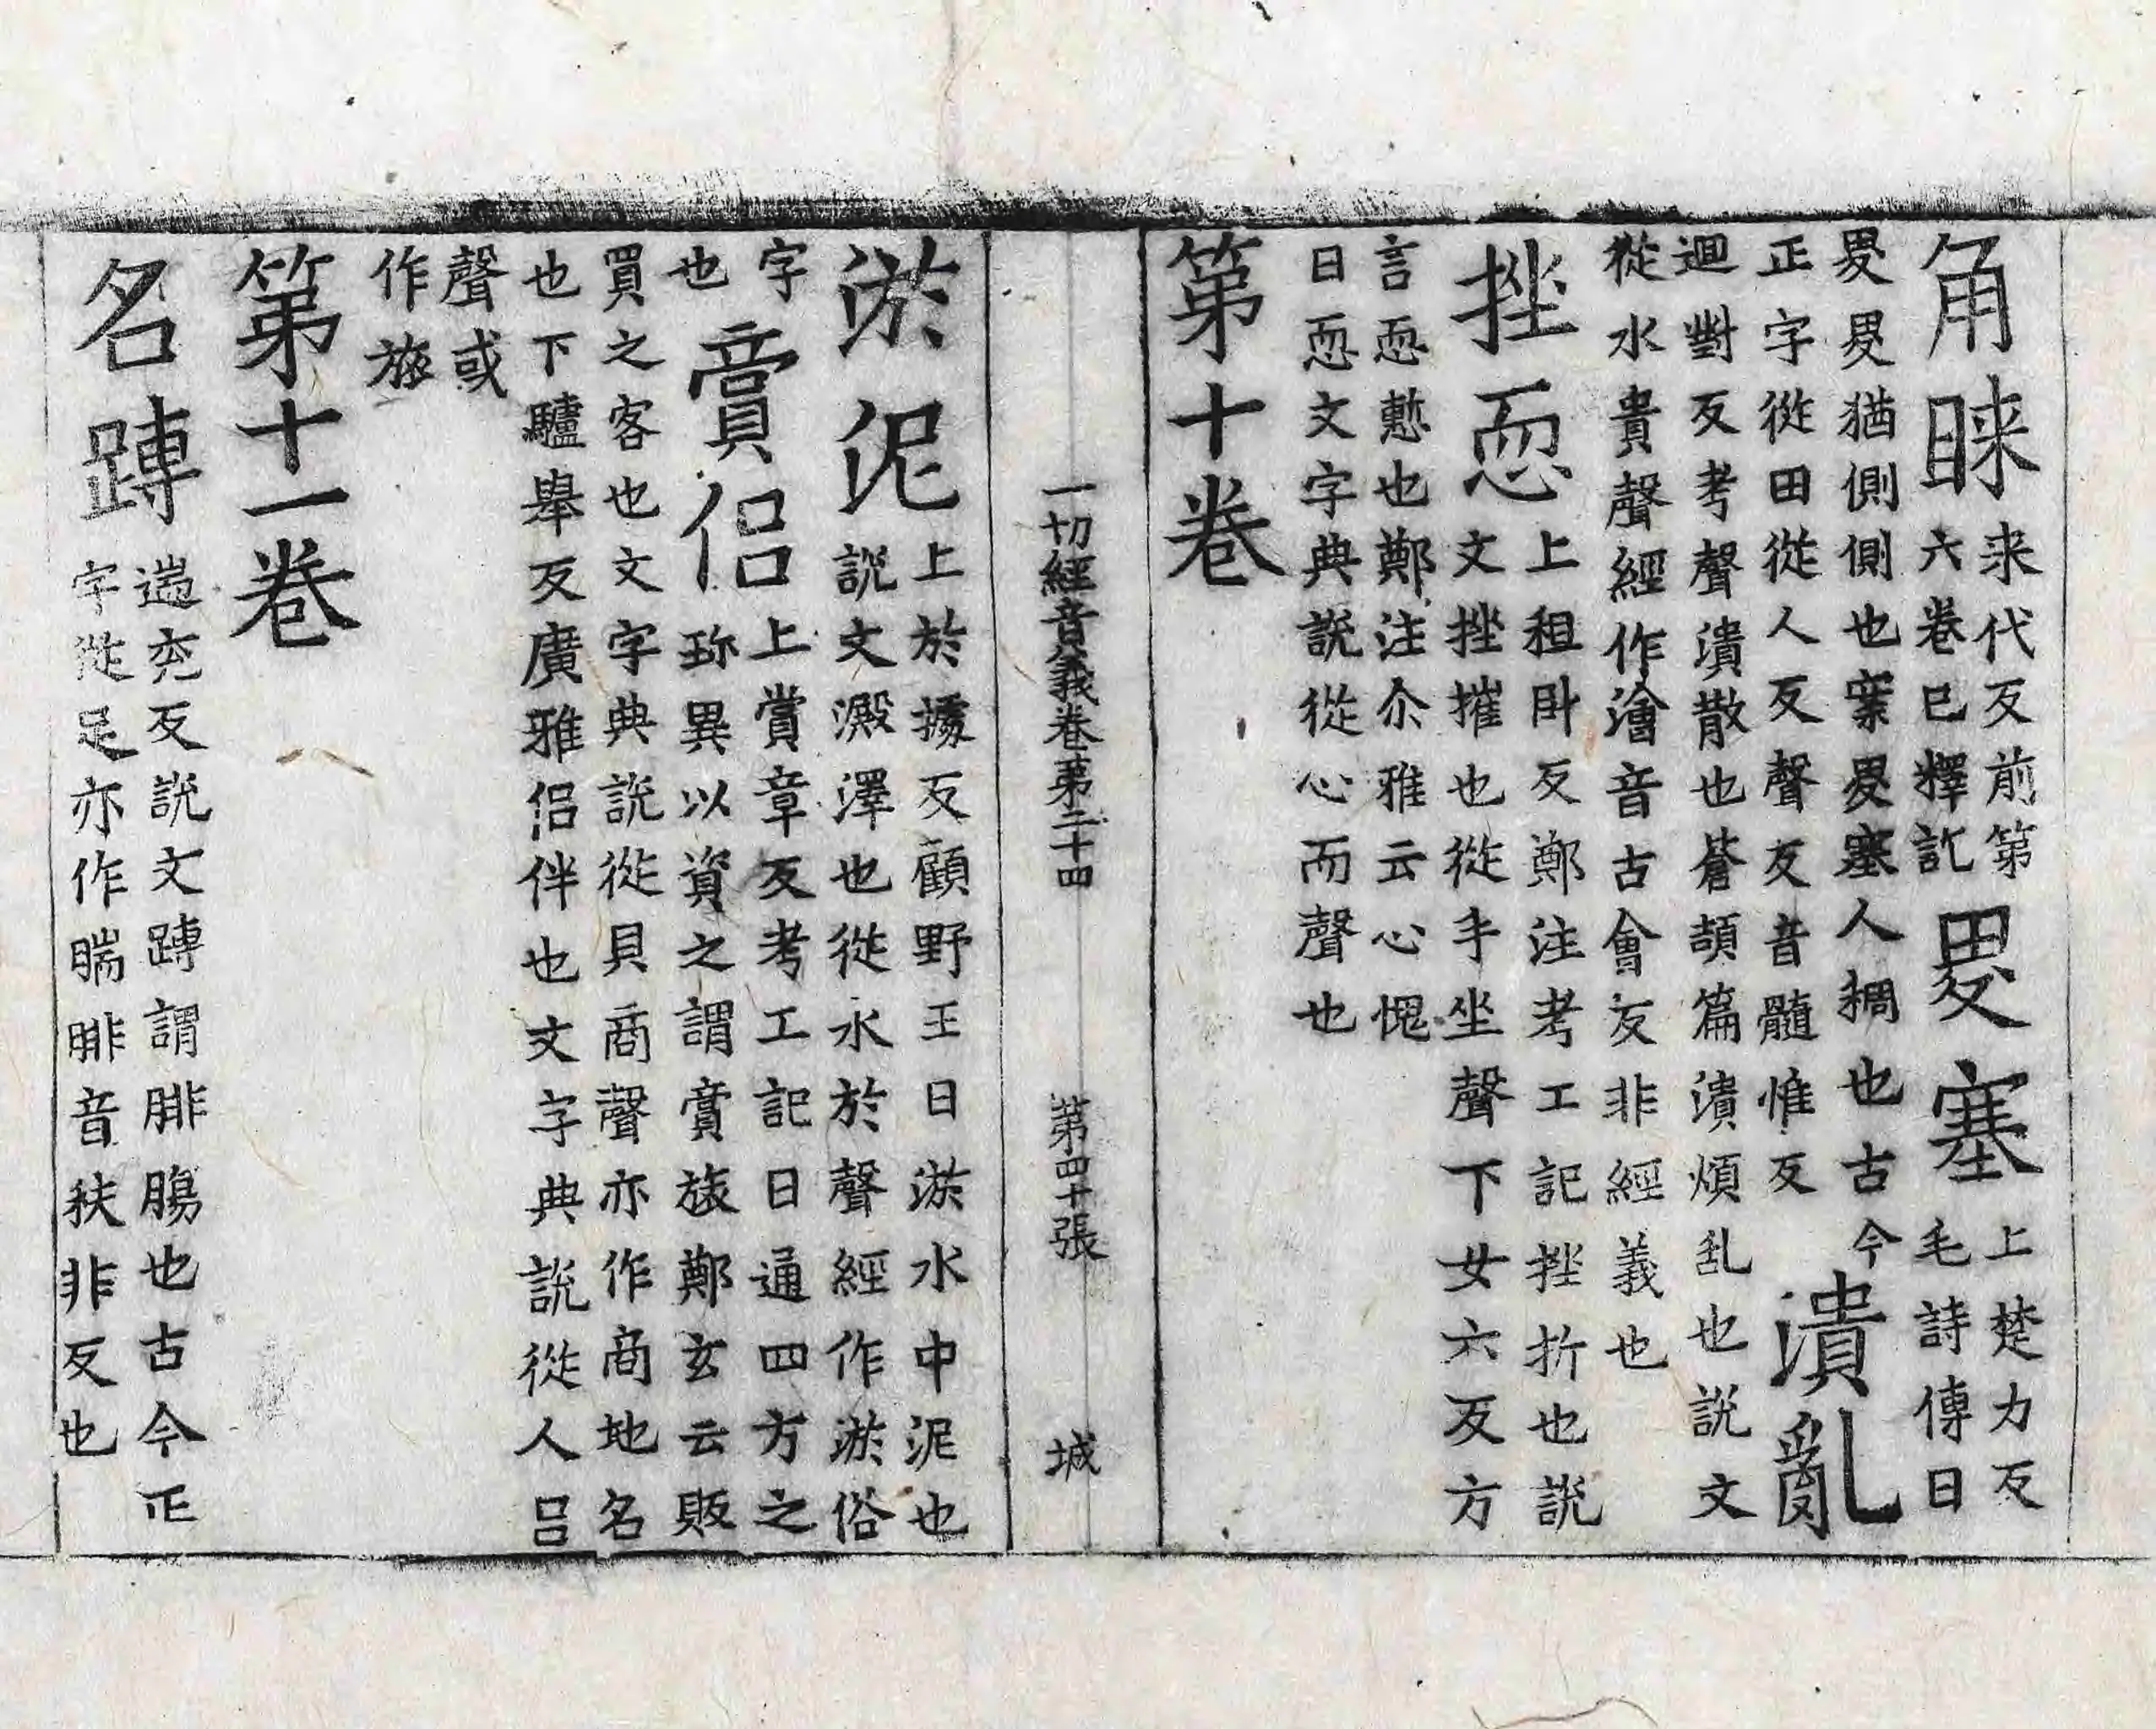 角睞來代反前第六卷已釋訖畟塞上楚力反毛詩傳曰
畟畟猶側側也案畟塞人稠也古今
正字從田從人夊聲夊音髓惟反潰亂
迴對反考聲潰散也蒼頡篇潰煩乱也說文
從水貴聲經作澮音古會反非經義也
挫恧上租卧反鄭注考工記挫折也說
文挫挫摧也從手坐聲下女六反方
言恧慙也鄭注尒雅云心愧
曰恧文字典說從心而聲也
第十卷
一切經音義卷第二十四 第四十張 城
淤泥上於據反顧野王曰淤水中泥也
說文澱滓也從水於聲經作淤俗
字也𧶜侶上賞章反考工記曰通四方之
珎異以資之謂𧶜旅鄭玄云販
買之客也文字典說從貝商聲亦作商地名
也下驢舉反廣雅侶伴也文字典說從人呂
聲或
作旅
第十一卷
名𨄔遄兖反說文𨄔謂腓腸也古今正
字從足亦作腨腓音扶非反也